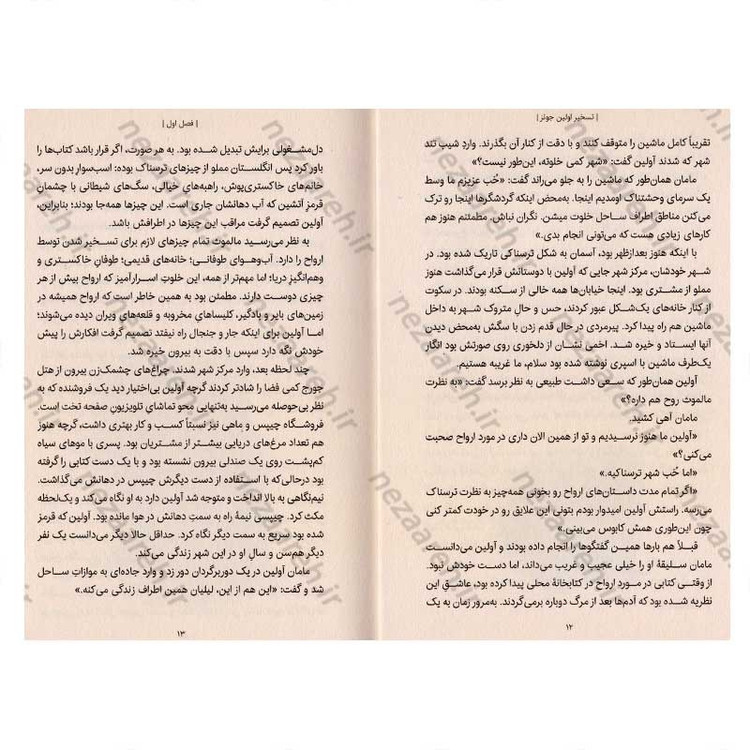 | تسخیر اولین جونز |
تقریباً کامل ماشین را متوقف کنند و با دقت از کنار آن بگذرند. واردِ شیب تند
شهر که شدند آولین گفت: «شهر کمی خلوته، این‌طور نیست؟»
مامان همان‌طور که ماشین را به جلو می‌راند گفت: «خُب عزیزم ما وسط
یک سرمای وحشتناک اومدیم اینجا. به‌محض اینکه گردشگرها اینجا رو ترک
می‌کنن مناطق اطراف ساحل خلوت میشن. نگران نباش. مطمئنم هنوز هم
کارهای زیادی هست که می‌تونی انجام بدی.»
با اینکه هنوز بعدازظهر بود، آسمان به شکل ترسناکی تاریک شده بود. در
شهر خودشان، مرکز شهر جایی که آولین با دوستانش قرار می‌گذاشت هنوز
مملو از مشتری بود. اینجا خیابان‌ها همه خالی از سکنه بودند. در سکوت
از کنار خانه‌های یک‌شکل عبور کردند، حس و حالِ متروک شهر به داخل
ماشین هم راه پیدا کرد. پیرمردی در حال قدم زدن با سگش به‌محض دیدن
آنها ایستاد و خیره شد. اخمی نشان از دلخوری روی صورتش بود انگار
یک‌طرف ماشین با اسپری نوشته شده بود سلام، ما غریبه هستیم.
آولین همان‌طور که سعی داشت طبیعی به نظر برسد گفت: «به نظرت
مالموث روح هم داره؟»
مامان آهی کشید.
«آولین ما هنوز نرسیدیم و تو از همین الان داری در مورد ارواح صحبت
می‌کنی؟»
«اما خُب شهر ترسناکیه.»
«اگر تمام مدت داستان‌های ارواح رو بخونی همه‌چیز به نظرت ترسناک
می‌رسه. راستش آولین امیدوار بودم بتونی این علایق رو در خودت کمتر کنی
چون این‌طوری همش کابوس می‌بینی.»
قبلاً هم بارها همین گفتگوها را انجام داده بودند و آولین می‌دانست
مامان سلیقهٔ او را خیلی عجیب و غریب می‌داند، اما دست خودش نبود.
از وقتی کتابی در مورد ارواح در کتابخانهٔ محلی پیدا کرده بود، عاشقِ این
نظریه شده بود که آدم‌ها بعد از مرگ دوباره برمی‌گردند. به‌مرور زمان به یک
۱۲
| فصل اول |
دل‌مشغولی برایش تبدیل شده بود. به هر صورت، اگر قرار باشد کتاب‌ها را
باور کرد پس انگلستان مملو از چیزهای ترسناک بوده: اسب‌سوارِ بدون سر،
خانم‌های خاکستری‌پوش، راهبه‌های خیالی، سگ‌های شیطانی با چشمانِ
قرمزِ آتشین که آب دهانشان جاری است. این چیزها همه‌جا بودند؛ بنابراین،
آولین تصمیم گرفت مراقب این چیزها در اطرافش باشد.
به نظر می‌رسید مالموث تمام چیزهای لازم برای تسخیر شدن توسط
ارواح را دارد. آب‌وهوای طوفانی؛ خانه‌های قدیمی؛ طوفانِ خاکستری و
وهم‌انگیزِ دریا؛ اما مهم‌تر از همه، این خلوتِ اسرارآمیز که ارواح بیش از هر
چیزی دوست دارند. مطمئن بود به همین خاطر است که ارواح همیشه در
زمین‌های بایر و بادگیر، کلیساهای مخروبه و قلعه‌های ویران دیده می‌شوند؛
اما آولین برای اینکه جار و جنجال راه نیفتد تصمیم گرفت افکارش را پیش
خودش نگه دارد سپس با دقت به بیرون خیره شد.
چند لحظه بعد، وارد مرکز شهر شدند. چراغ‌های چشمک‌زن بیرون از هتل
جورج کمی فضا را شادتر کردند گرچه آولین بی‌اختیار دید یک فروشنده که به
نظر بی‌حوصله می‌رسید به‌تنهایی محو تماشایِ تلویزیون صفحه تخت است.
فروشگاه چیپس و ماهی نیز نسبتاً کسب و کار بهتری داشت، گرچه هنوز
هم تعداد مرغ‌های دریایی بیشتر از مشتریان بود. پسری با موهای سیاه
کم‌پشت روی یک صندلی بیرون نشسته بود و با یک دست کتابی را گرفته
بود درحالی که با استفاده از دست دیگرش چیپس در دهانش می‌گذاشت.
نیم‌نگاهی به بالا انداخت و متوجه شد آولین دارد به او نگاه می‌کند و یک‌لحظه
مکث کرد. چیپسی نیمهٔ راه به سمت دهانش در هوا مانده بود. آولین که قرمز
شده بود سریع به سمت دیگر نگاه کرد. حداقل حالا دیگر می‌دانست یک نفر
دیگر هم‌سن و سال او در این شهر زندگی می‌کند.
مامان آولین در یک دوربرگردان دور زد و وارد جاده‌ای به موازاتِ ساحل
شد و گفت: «این هم از این، لیلیان همین اطراف زندگی می‌کنه.»
۱۳
nezaareh.ir